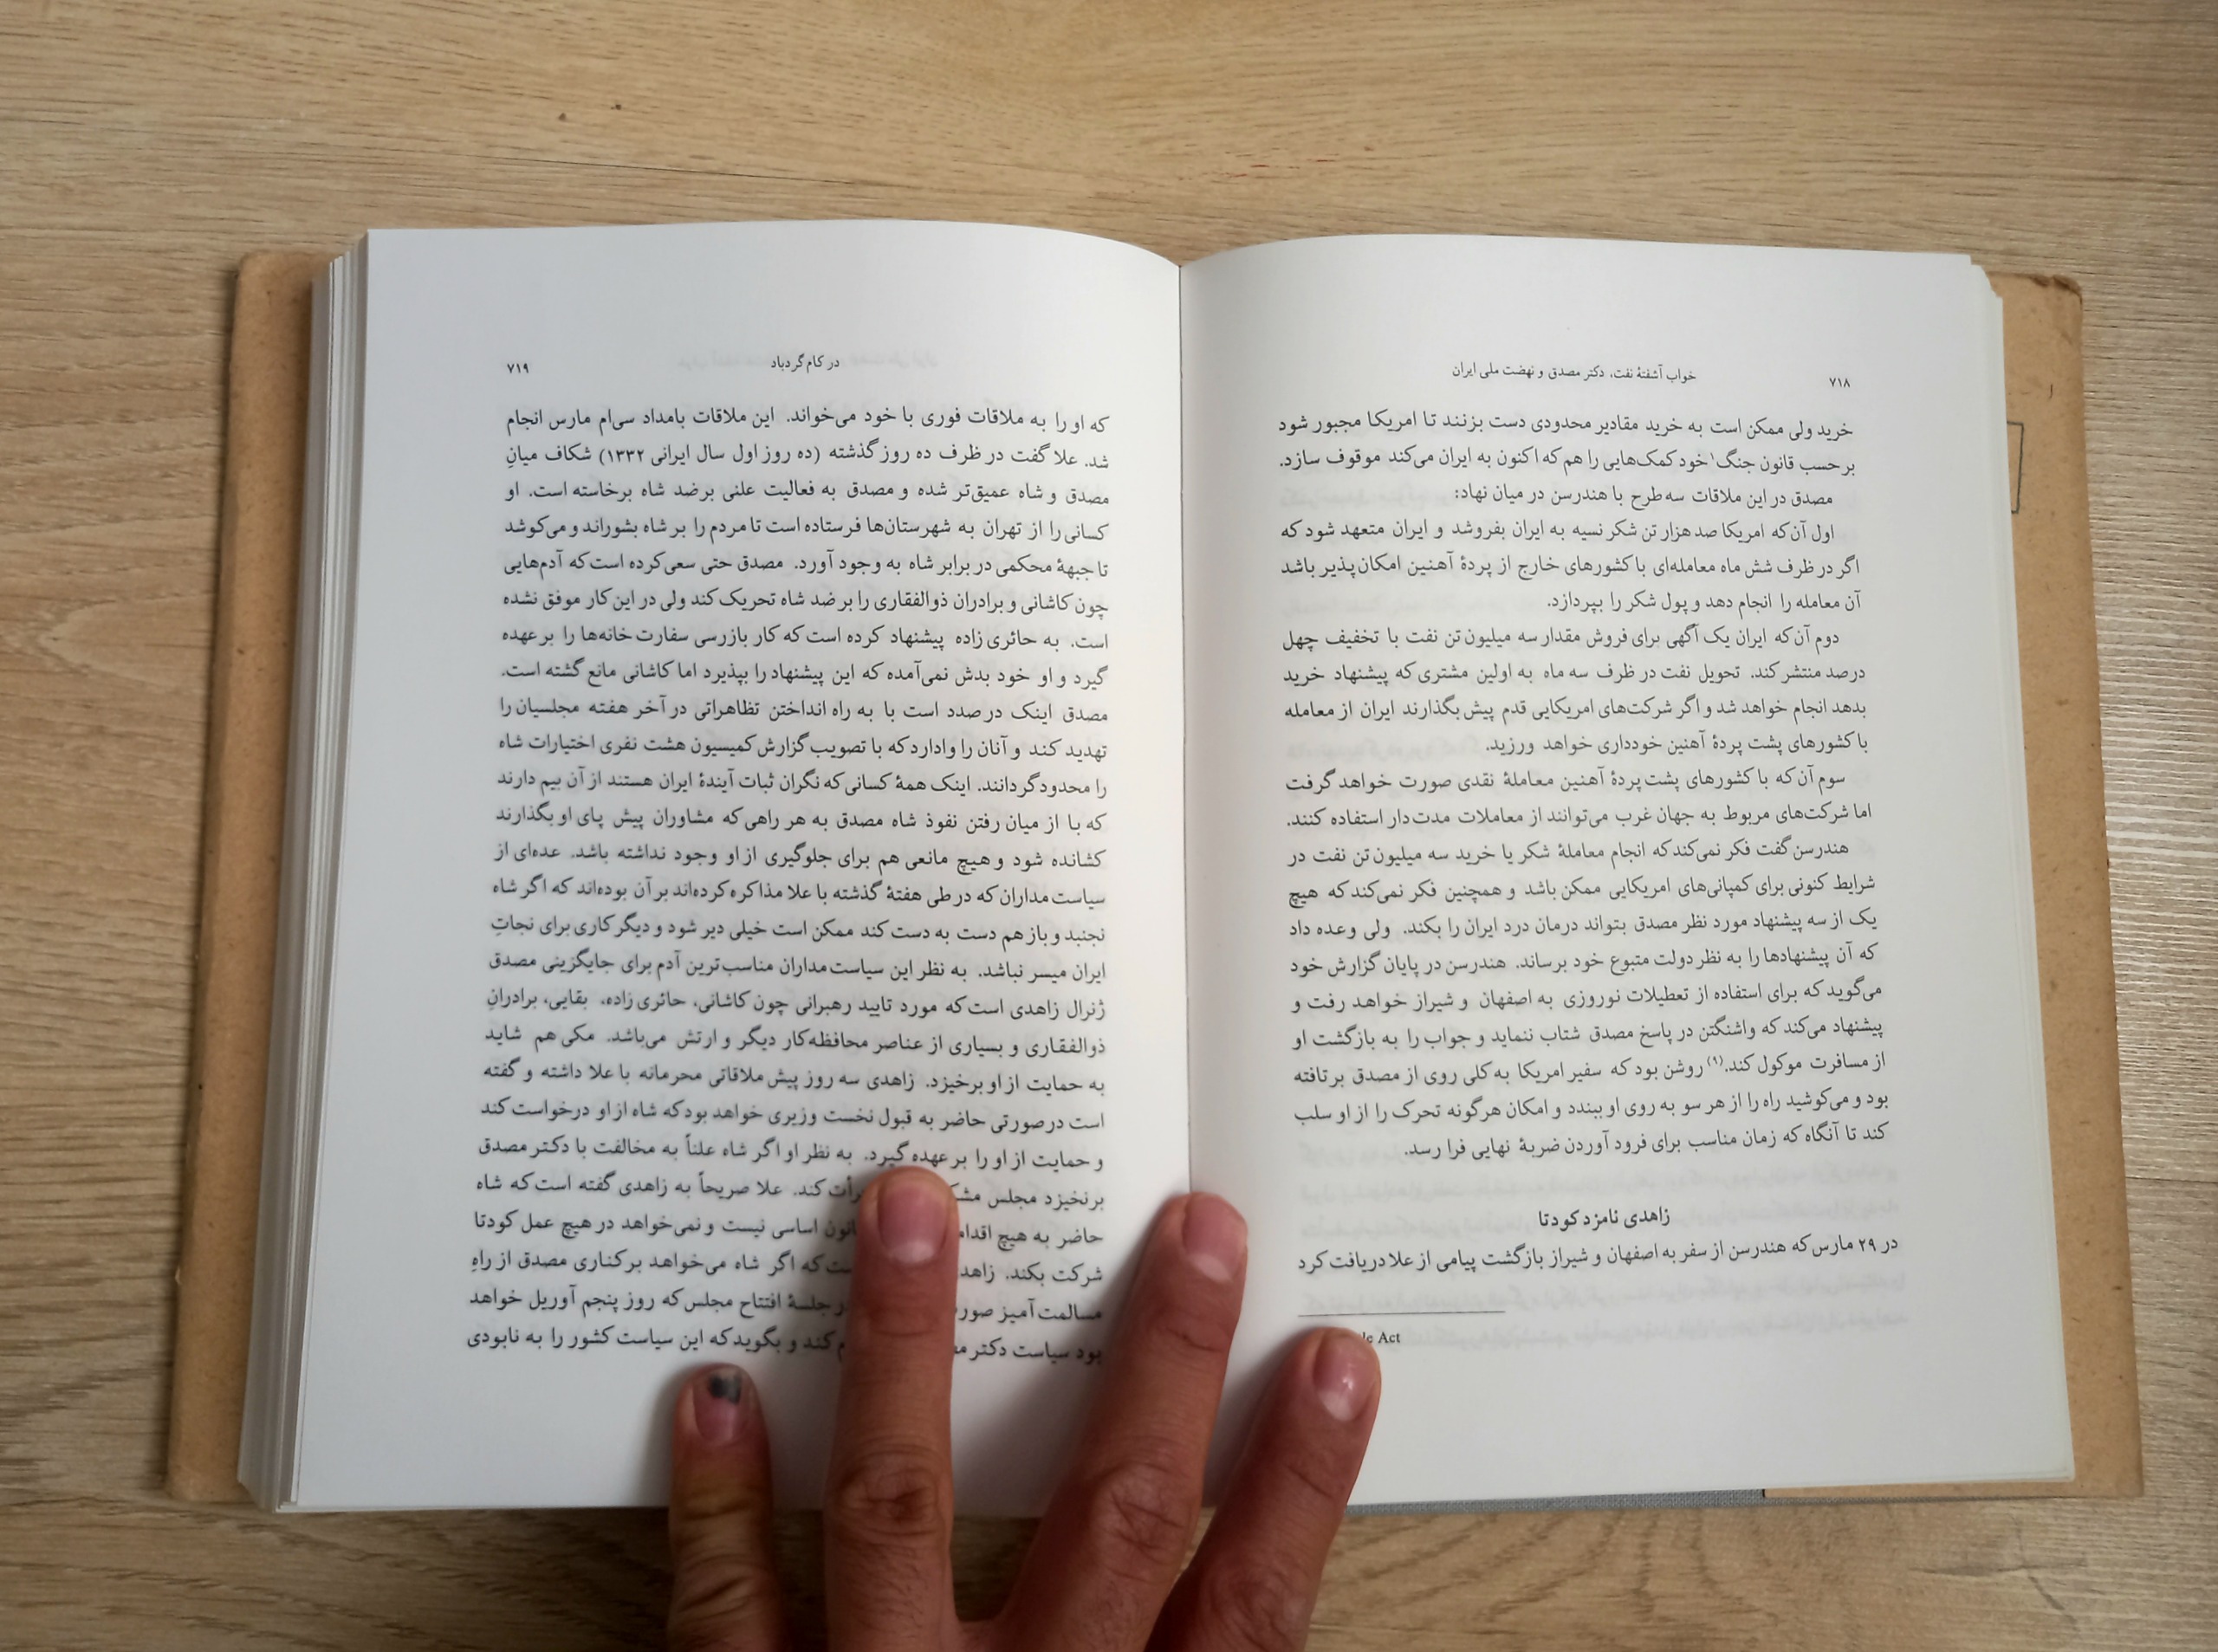 ۷۱۸
خواب آشفتهٔ نفت، دکتر مصدق و نهضت ملی ایران
خرید ولی ممکن است به خرید مقادیر محدودی دست بزنند تا امریکا مجبور شود
برحسب قانون جنگ۱ خود کمک‌هایی را هم که اکنون به ایران می‌کند موقوف سازد.
مصدق در این ملاقات سه طرح با هندرسن در میان نهاد:
اول آن‌که امریکا صد هزار تن شکر نسیه به ایران بفروشد و ایران متعهد شود که
اگر در ظرف شش ماه معامله‌ای با کشورهای خارج از پردهٔ آهنین امکان‌پذیر باشد
آن معامله را انجام دهد و پول شکر را بپردازد.
دوم آن‌که ایران یک آگهی برای فروش مقدار سه میلیون تن نفت با تخفیف چهل
درصد منتشر کند. تحویل نفت در ظرف سه ماه به اولین مشتری که پیشنهاد خرید
بدهد انجام خواهد شد و اگر شرکت‌های امریکایی قدم پیش بگذارند ایران از معامله
با کشورهای پشت پردهٔ آهنین خودداری خواهد ورزید.
سوم آن‌که با کشورهای پشت پردهٔ آهنین معاملهٔ نقدی صورت خواهد گرفت
اما شرکت‌های مربوط به جهان غرب می‌توانند از معاملات مدت‌دار استفاده کنند.
هندرسن گفت فکر نمی‌کند که انجام معاملهٔ شکر یا خرید سه میلیون تن نفت در
شرایط کنونی برای کمپانی‌های امریکایی ممکن باشد و همچنین فکر نمی‌کند که هیچ
یک از سه پیشنهاد مورد نظر مصدق بتواند درمان درد ایران را بکند. ولی وعده داد
که آن پیشنهادها را به نظر دولت متبوع خود برساند. هندرسن در پایان گزارش خود
می‌گوید که برای استفاده از تعطیلات نوروزی به اصفهان و شیراز خواهد رفت و
پیشنهاد می‌کند که واشنگتن در پاسخ مصدق شتاب ننماید و جواب را به بازگشت او
از مسافرت موکول کند.(۹) روشن بود که سفیر امریکا به کلی روی از مصدق برتافته
بود و می‌کوشید راه را از هر سو به روی او ببندد و امکان هرگونه تحرک را از او سلب
کند تا آنگاه که زمان مناسب برای فرود آوردن ضربهٔ نهایی فرا رسد.
زاهدی نامزد کودتا
در ۲۹ مارس که هندرسن از سفر به اصفهان و شیراز بازگشت پیامی از علا دریافت کرد
Act
در کام گردباد
۷۱۹
که او را به ملاقات فوری با خود می‌خواند. این ملاقات بامداد سی‌ام مارس انجام
شد. علا گفت در ظرف ده روز گذشته (ده روز اول سال ایرانی ۱۳۳۲) شکاف میانِ
مصدق و شاه عمیق‌تر شده و مصدق به فعالیت علنی برضد شاه برخاسته است. او
کسانی را از تهران به شهرستان‌ها فرستاده است تا مردم را بر شاه بشوراند و می‌کوشد
تا جبههٔ محکمی در برابر شاه به وجود آورد. مصدق حتی سعی کرده است که آدم‌هایی
چون کاشانی و برادران ذوالفقاری را بر ضد شاه تحریک کند ولی در این کار موفق نشده
است. به حائری‌زاده پیشنهاد کرده است که کار بازرسی سفارت خانه‌ها را برعهده
گیرد و او خود بدش نمی‌آمده که این پیشنهاد را بپذیرد اما کاشانی مانع گشته است.
مصدق اینک درصدد است با به راه انداختن تظاهراتی در آخر هفته مجلسیان را
تهدید کند و آنان را وادارد که با تصویب گزارش کمیسیون هشت نفری اختیارات شاه
را محدود گردانند. اینک همهٔ کسانی که نگران ثبات آیندهٔ ایران هستند از آن بیم دارند
که با از میان رفتن نفوذ شاه مصدق به هر راهی که مشاوران پیش پای او بگذارند
کشانده شود و هیچ مانعی هم برای جلوگیری از او وجود نداشته باشد. عده‌ای از
سیاست‌مداران که در طی هفتهٔ گذشته با علا مذاکره کرده‌اند بر آن بوده‌اند که اگر شاه
نجنبد و باز هم دست به دست کند ممکن است خیلی دیر شود و دیگر کاری برای نجاتِ
ایران میسر نباشد. به نظر این سیاست‌مداران مناسب‌ترین آدم برای جایگزینی مصدق
ژنرال زاهدی است که مورد تایید رهبرانی چون کاشانی، حائری‌زاده، بقایی، برادرانِ
ذوالفقاری و بسیاری از عناصر محافظه‌کار دیگر و ارتش می‌باشد. مکی هم شاید
به حمایت از او برخیزد. زاهدی سه روز پیش ملاقاتی محرمانه با علا داشته و گفته
است در صورتی حاضر به قبول نخست وزیری خواهد بود که شاه از او درخواست کند
و حمایت از او را برعهده گیرد. به نظر او اگر شاه علناً به مخالفت با دکتر مصدق
برنخیزد مجلس کند. علا صریحاً به زاهدی گفته است که شاه
حاضر به هیچ اساسی نیست و نمی‌خواهد در هیچ عمل کودتا
شرکت بکند. که اگر شاه می‌خواهد برکناری مصدق از راهِ
مسالمت‌آمیز جلسهٔ افتتاح مجلس که روز پنجم آوریل خواهد
بود سیاست دکتر کند و بگوید که این سیاست کشور را به نابودی